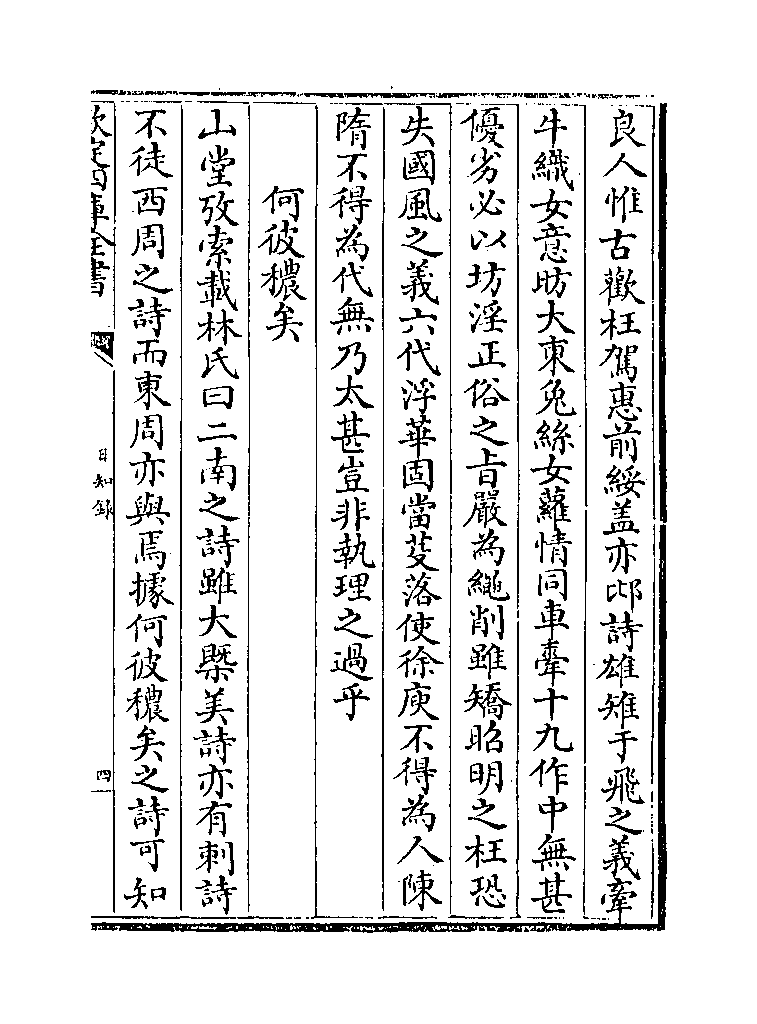 良人惟古歡枉駕惠前綏盖亦邶詩雄雉于飛之義牽
牛織女意昉大東兔絲女蘿情同車舝十九作中無甚
優劣必以坊淫正俗之旨嚴為繩削雖矯昭明之枉恐
失國風之義六代浮華固當芟落使徐庾不得為人陳
隋不得為代無乃太甚豈非執理之過乎
何彼穠矣
山堂攷索載林氏曰二南之詩雖大槩美詩亦有刺詩
不徒西周之詩而東周亦與焉據何彼穠矣之詩可知
欽定四庫全書
日知錄
四